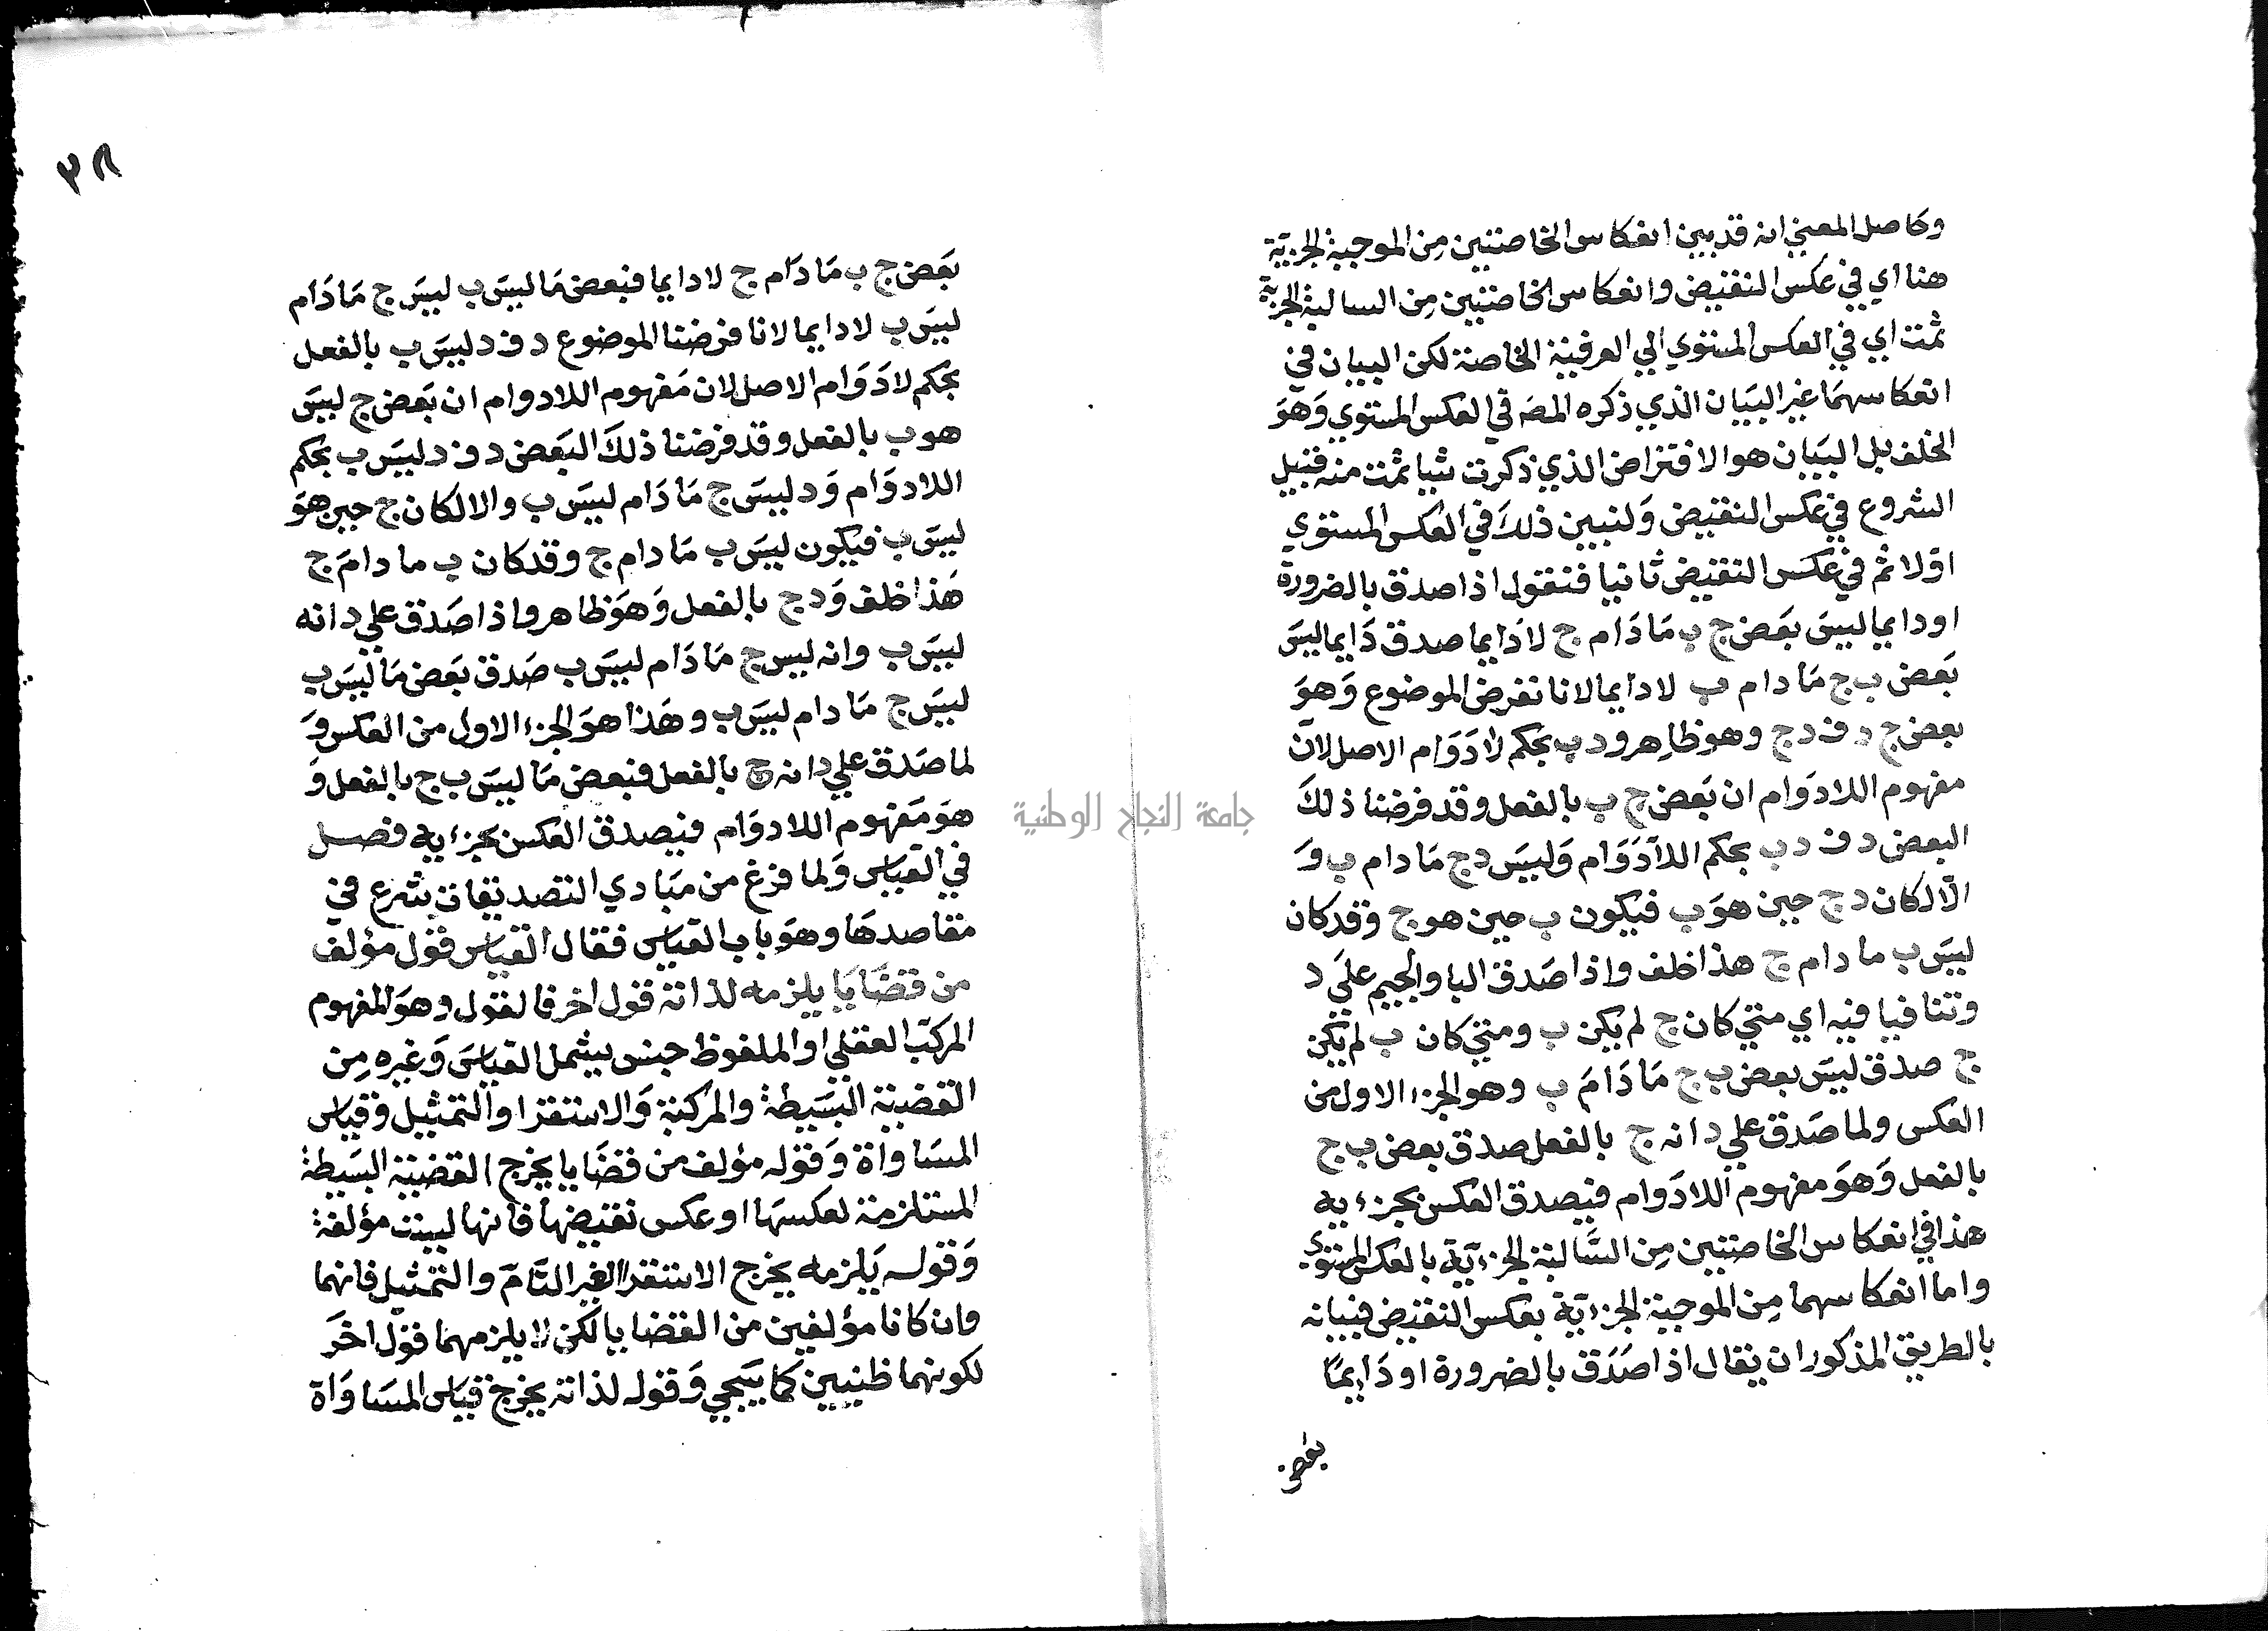 وحاصل المعني انه قد بين انعكاس الخاصتين من الموجبة الجزيية
هنا اي في عكس النقيض وانعكاس الخاصتين من السالبة الجزية
ثمت اي في العكس المستوي الي العرفية الخاصة لكن البيان في
انعكاسهما غير البيان الذي ذكره المصـ في العكس المستوي وهو
الخلف بل البيان هو الافتراض الذي ذكرت شيا ثمت منه قبيل
الشروع في عكس النقيض ولنبين ذلك في العكس المستوي
اولا ثم في عكس النقيض ثانيا فنقول اذا صدق بالضرورة
او دايما ليس بعض ج ب ما دام ج لا دايما صدق دايما ليس
بعض ب ج ما دام ب لا دايما لانا نفرض الموضوع وهو
بعض ج د فـ د ج وهو ظاهر ود ب بحكم لا دوام الاصل لان
مفهوم اللادوام ان بعض ج ب بالفعل وقد فرضنا ذلك
البعض د فـ د ب بحكم اللادوام وليس د ج ما دام ب و
الا لكان د ج حين هو ب فيكون ب حين هو ج وقد كان
ليس ب ما دام ج هذا خلف واذا صدق البا والجيم علي د
وتنافيا فيه اي متي كان ج لم يكن ب ومتي كان ب لم يكن
ج صدق ليس بعض ب ج ما دام ب وهو الجزء الاول من
العكس ولما صدق علي د انه ج بالفعل صدق بعض ب ج
بالفعل وهو مفهوم اللادوام فيصدق العكس بجزءيه
هذا في انعكاس الخاصتين من السالبة الجزءية بالعكس المستوي
واما انعكاسهما من الموجبة الجزءية بعكس النقيض فبيانه
بالطريق المذكور ان يقال اذا صدق بالضرورة او دايما
بعض
٣٨
بعض ج ب ما دام ج لا دايما فبعض ما ليس ب ليس ج ما دام
ليس ب لا دايما لانا فرضنا الموضوع د فـ د ليس ب بالفعل
بحكم لا دوام الاصل لان مفهوم اللادوام ان بعض ج ليس
هو ب بالفعل وقد فرضنا ذلك البعض د فـ د ليس ب بحكم
اللادوام ود ليس ج ما دام ليس ب والا لكان ج حين هو
ليس ب فيكون ليس ب ما دام ج وقد كان ب ما دام ج
هذا خلف ود ج بالفعل وهو ظاهر واذا صدق علي د انه
ليس ب وانه ليس ج ما دام ليس ب صدق بعض ما ليس ب
ليس ج ما دام ليس ب وهذا هو الجزء الاول من العكس و
لما صدق علي د انه ج بالفعل فبعض ما ليس ب ج بالفعل و
هو مفهوم اللادوام فيصدق العكس بجزءيه فصل
في القياس ولما فرغ من مبادي التصديقات شرع في
مقاصدها وهو باب القياس فقال القياس قول مؤلف
من قضايا يلزمه لذاته قول اخر فالقول وهو المفهوم
المركب العقلي او الملفوظ جنس يشمل القياس وغيره من
القضية البسيطة والمركبة والاستقرا والتمثيل وقياس
المساواة وقوله مؤلف من قضايا يخرج القضية البسيطة
المستلزمة لعكسها او عكس نقيضها فانها ليست مؤلفة
وقوله يلزمه يخرج الاستقرا الغير التام والتمثيل فانهما
وان كانا مؤلفين من القضايا لكن لا يلزمهما قول اخر
لكونهما ظنيين كما يبجي وقوله لذاته يخرج قياس المساواة
جامعة النجاح الوطنية